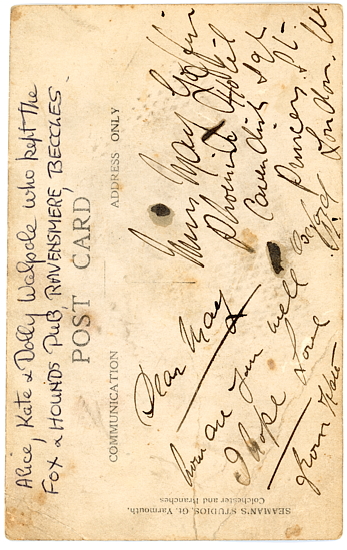 Alice, Kate & Dolly Walpole who kept the
FOX & HOUNDS PUB, RAVENSMERE, BECCLES.
POST CARD
COMMUNICATION
ADDRESS ONLY
Miss May
Phoenix Hotel
Cavendish Sqr
Princes St
Oxford St
London. W.
Dear May
how are you
well
I hope Love
from Kate
SEAMAN'S STUDIOS, Gt. Yarmouth,
Colchester and Branches